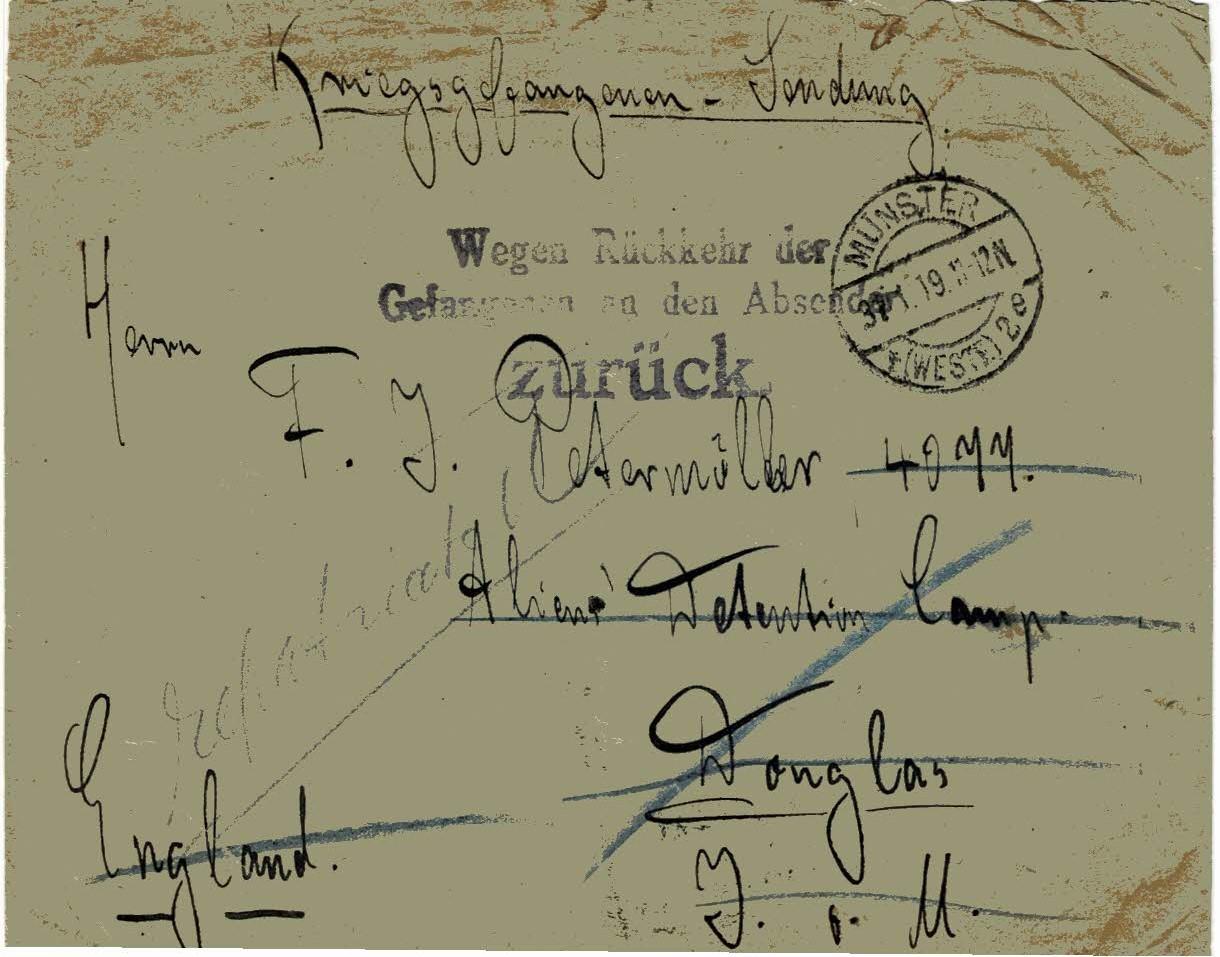 Kriegsgefangenen - Sendung.
Wegen Rückkehr der
Gefangenen an den Absender
zurück.
MÜNSTER
31.1.19.11-12N
*(WESTF) 2e
Herrn
F. J. Petermöller 4077.
repatriated
Aliens' Detention Camp.
Douglas
England.
J. o. M.